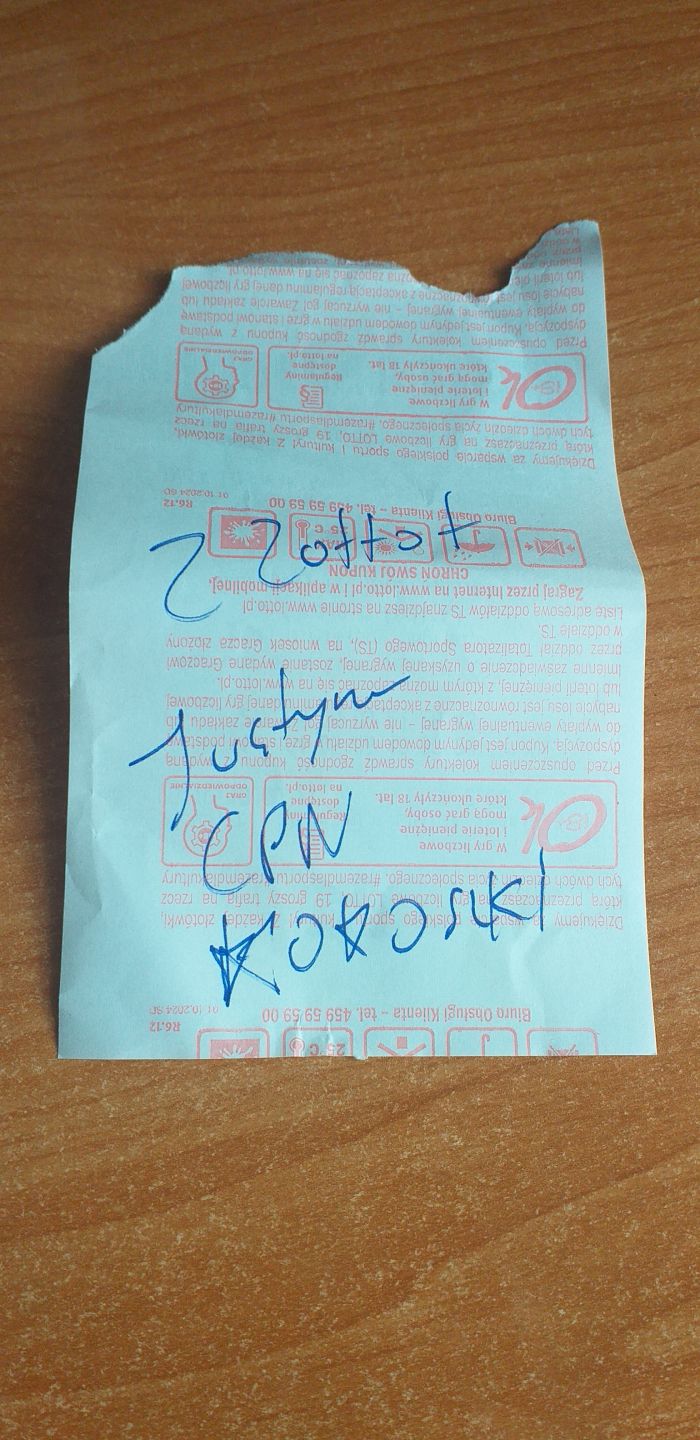 Justyna
CPN
25 °C
Biuro Obsługi Klienta – tel. 459 59 59 00
R6.12
01.10.2024 SD
Dziękujemy za wsparcie polskiego sportu i kultury! Z każdej złotówki,
którą przeznaczasz na gry liczbowe LOTTO, 19 groszy trafia na rzecz
tych dwóch dziedzin życia społecznego. #razemdlasportu #razemdlakultury
Ok 18+
W gry liczbowe
i loterie pieniężne
mogą grać osoby,
które ukończyły 18 lat.
Regulaminy
dostępne
na lotto.pl.
GRAJ
ODPOWIEDZIALNIE
Przed opuszczeniem kolektury sprawdź zgodność kuponu z wydaną
dyspozycją. Kupon jest jedynym dowodem udziału w grze i stanowi podstawę
do wypłaty ewentualnej wygranej – nie wyrzucaj go! Zawarcie zakładu lub
nabycie losu jest równoznaczne z akceptacją regulaminu danej gry liczbowej
lub loterii pieniężnej, z którym można zapoznać się na www.lotto.pl.
Imienne zaświadczenie o uzyskanej wygranej, zostanie wydane Graczowi
przez oddział Totalizatora Sportowego (TS), na wniosek Gracza złożony
w oddziale TS.
Listę adresową oddziałów TS znajdziesz na stronie www.lotto.pl
Zagraj przez Internet na www.lotto.pl i w aplikacji mobilnej.
CHROŃ SWÓJ KUPON
25 °C
Biuro Obsługi Klienta – tel. 459 59 59 00
R6.12
01.10.2024 SD
Dziękujemy za wsparcie polskiego sportu i kultury! Z każdej złotówki,
którą przeznaczasz na gry liczbowe LOTTO, 19 groszy trafia na rzecz
tych dwóch dziedzin życia społecznego. #razemdlasportu #razemdlakultury
Ok 18+
W gry liczbowe
i loterie pieniężne
mogą grać osoby,
które ukończyły 18 lat.
Regulaminy
dostępne
na lotto.pl.
GRAJ
ODPOWIEDZIALNIE
Przed opuszczeniem kolektury sprawdź zgodność kuponu z wydaną
dyspozycją. Kupon jest jedynym dowodem udziału w grze i stanowi podstawę
do wypłaty ewentualnej wygranej – nie wyrzucaj go! Zawarcie zakładu lub
nabycie losu jest równoznaczne z akceptacją regulaminu danej gry liczbowej
lub loterii pieniężnej, można zapoznać się na www.lotto.pl.